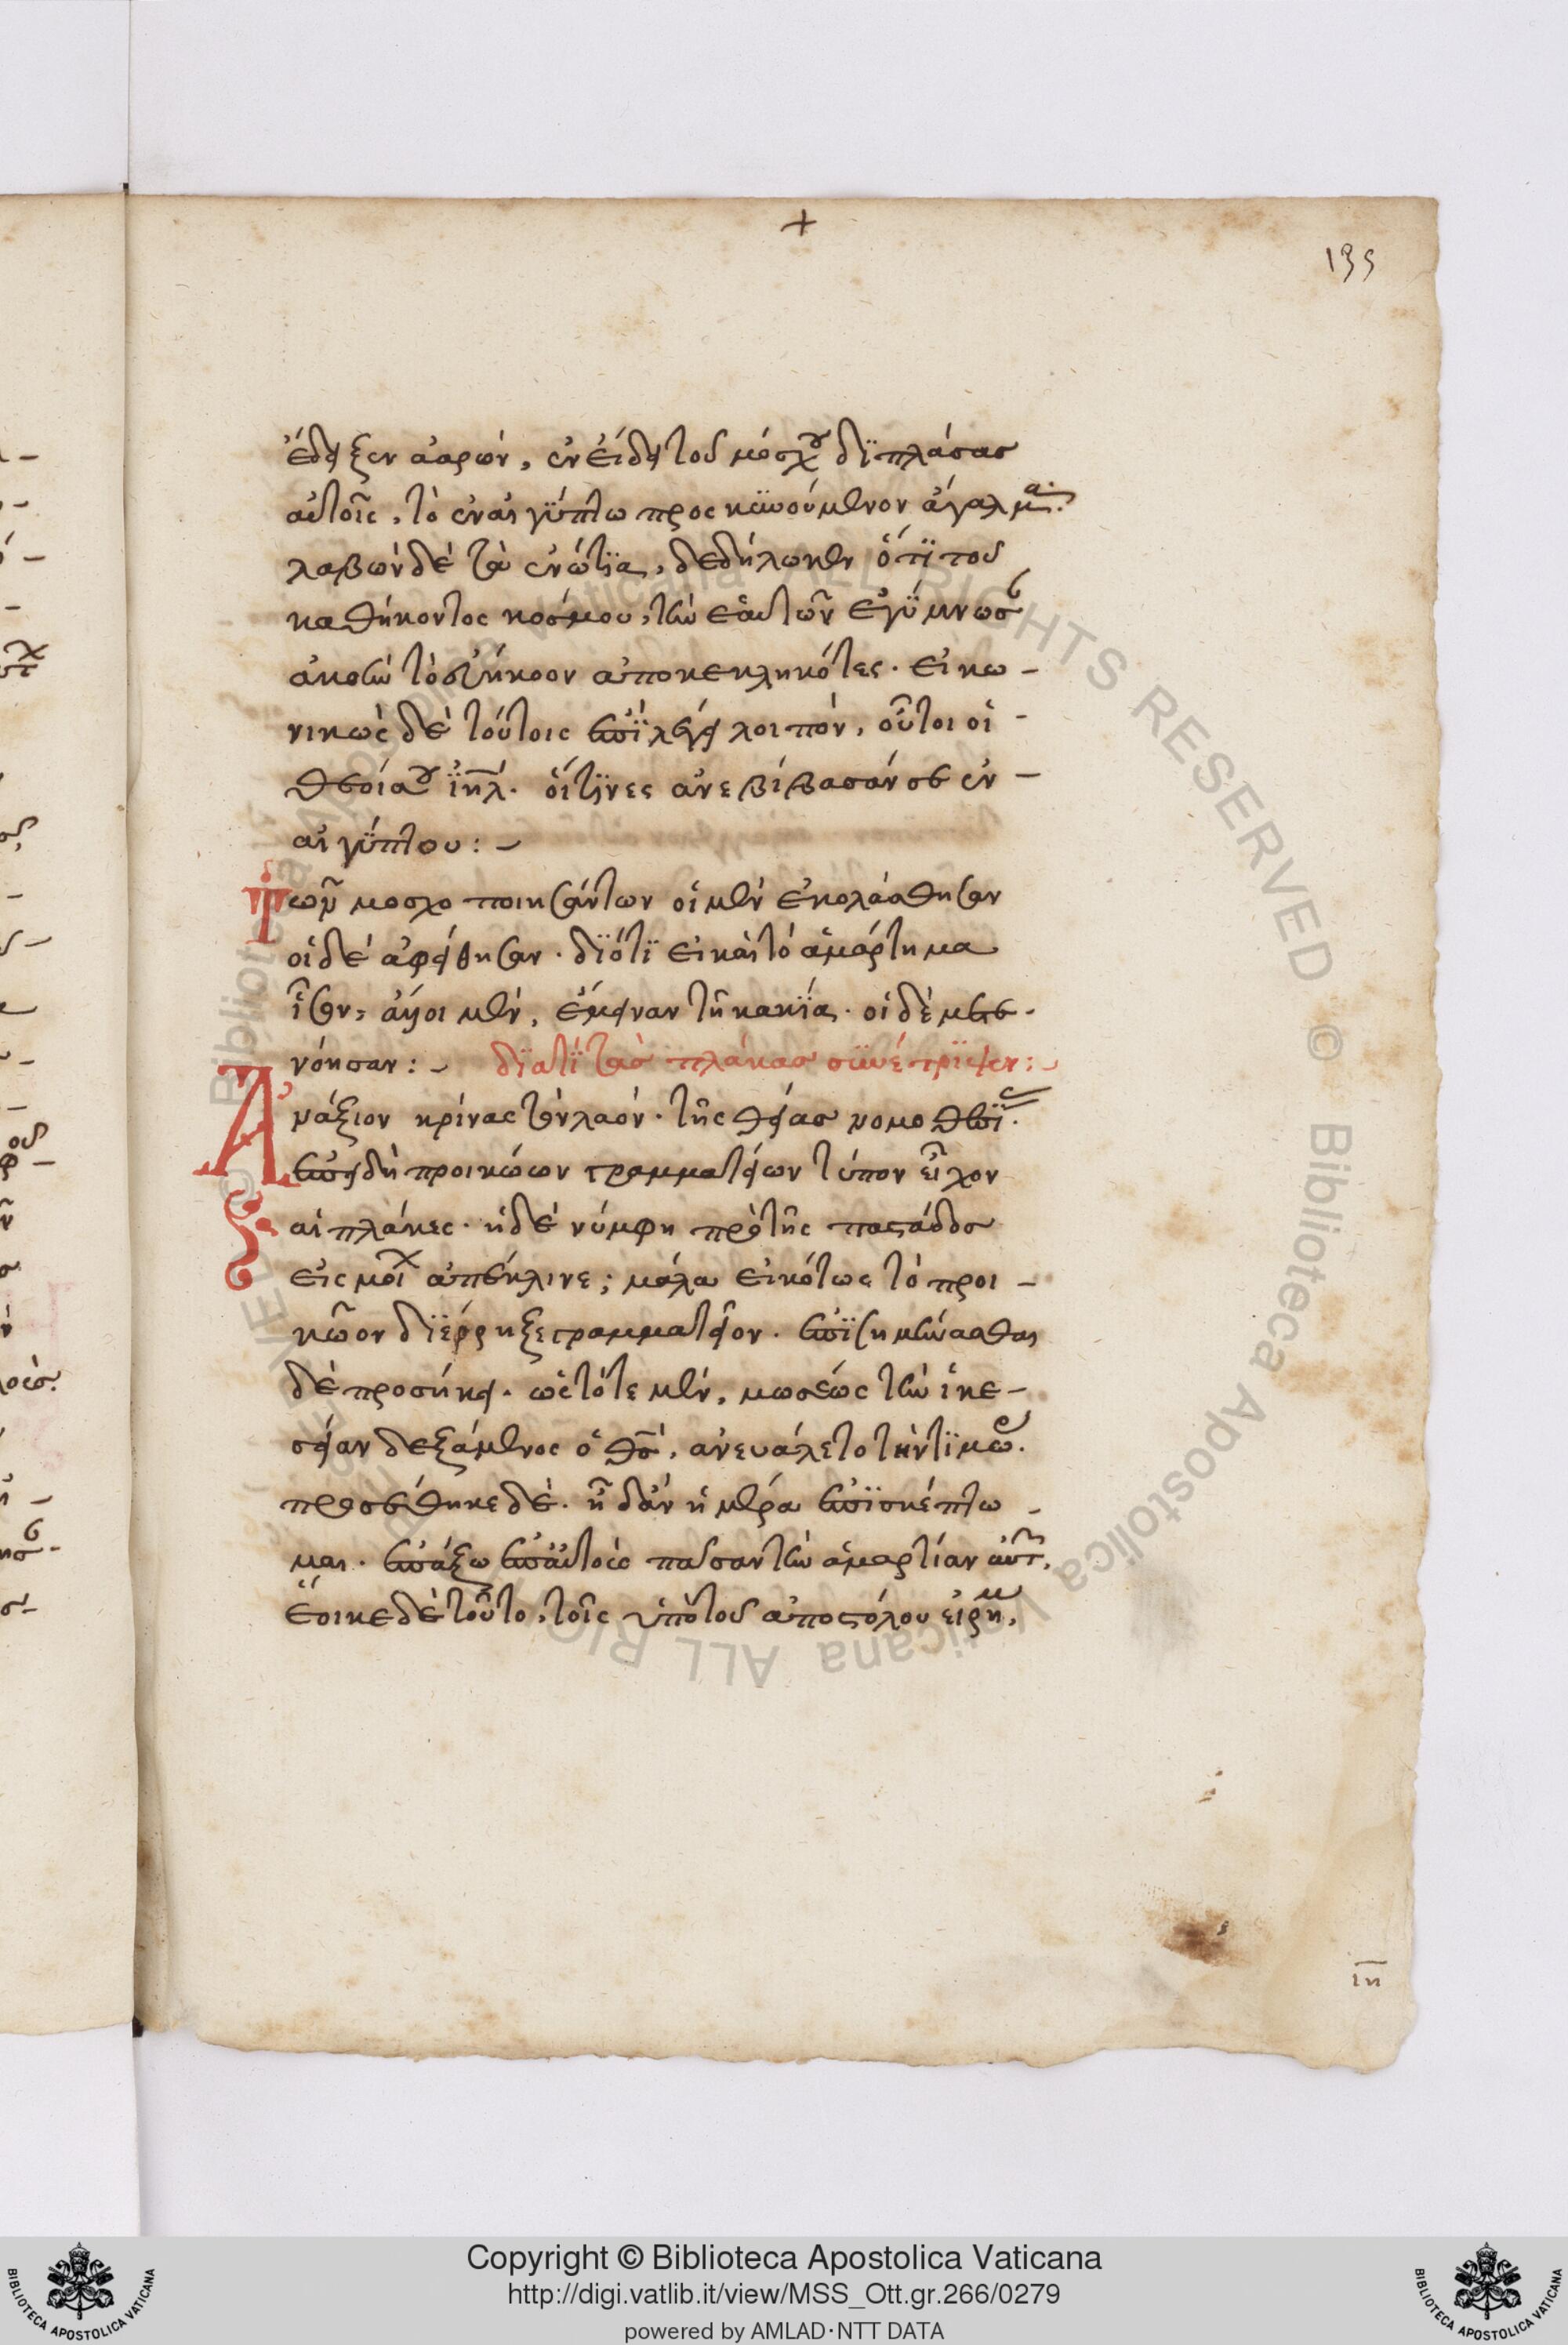 +
135
ἔδειξεν ἀαρών, ἐν εἴδει τοῦ μόσχου διπλάσας
αὐτοῖς, τὸ ἐν αἰγύπτω προσκυνούμενον ἄγαλμα.
λαβὼν δὲ τὰ ἐνώτια, δεδήλωκεν ὅτι τοῦ
καθήκοντος κόσμου, τὴν ἑαυτῶν ἐγύμνωσε
ἀκοὴν τὸ εὐήκοον ἀποκεκληκότες. εἰκω-
νικῶς δὲ τούτοις ἐπιλέγει λοιπόν, οὗτοι οἱ
θεοί σου ἰηλ. οἵτινες ἀνεβίβασάν σε ἐν
αἰγύπτου:-
Τῶν μοσχοποιησάντων οἱ μὲν ἐκολάσθησαν
οἱ δὲ ἀφείθησαν. διότι εἰ καὶ τὸ ἁμάρτημα
ἶσον, ἀλλ' οἱ μὲν, ἔμειναν τῆ κακία. οἱ δὲ μετε-
νόησαν:- διατί τὰς πλάκας συνέτριψεν:-
Ἀνάξιον κρίνας τὸν λαὸν. τῆς θείας νομοθεσί.
ἐπειδὴ προικώων γραμματείων τύπον εἶχον
αἱ πλάκες. ἡ δὲ νύμφη πρὸ τῆς παστάδος
εἰς μοιχ ἀπέκλινε; μάλα εἰκότως τὸ προι-
κῶον διέρρηξε γραμματεῖον. ἐπισημήνασθαι
δὲ προσήκει. ὡς τότε μὲν, μωσέως τὴν ἱκε-
σείαν δεξάμενος ὁ θς, ἀνευάλετο τὴν τιμω.
προσέθηκε δὲ. ἧ δἂν ἡμέρα ἐπισκέπτω-
μαι. ἐπάξω ἐπ' αὐτοὺς πᾶσαν τὴν ἁμαρτίαν αὐτ.
ἔοικε δὲ τοῦτο, τοῖς ὑπὸ τοῦ ἀποστόλου εἰρημ,
ιη
© Biblioteca Apostolica Vaticana ALL RIGHTS RESERVED
Copyright © Biblioteca Apostolica Vaticana
http://digi.vatlib.it/view/MSS_Ott.gr.266/0279
powered by AMLAD·NTT DATA
BIBLIOTECA APOSTOLICA VATICANA
BIBLIOTECA APOSTOLICA VATICANA